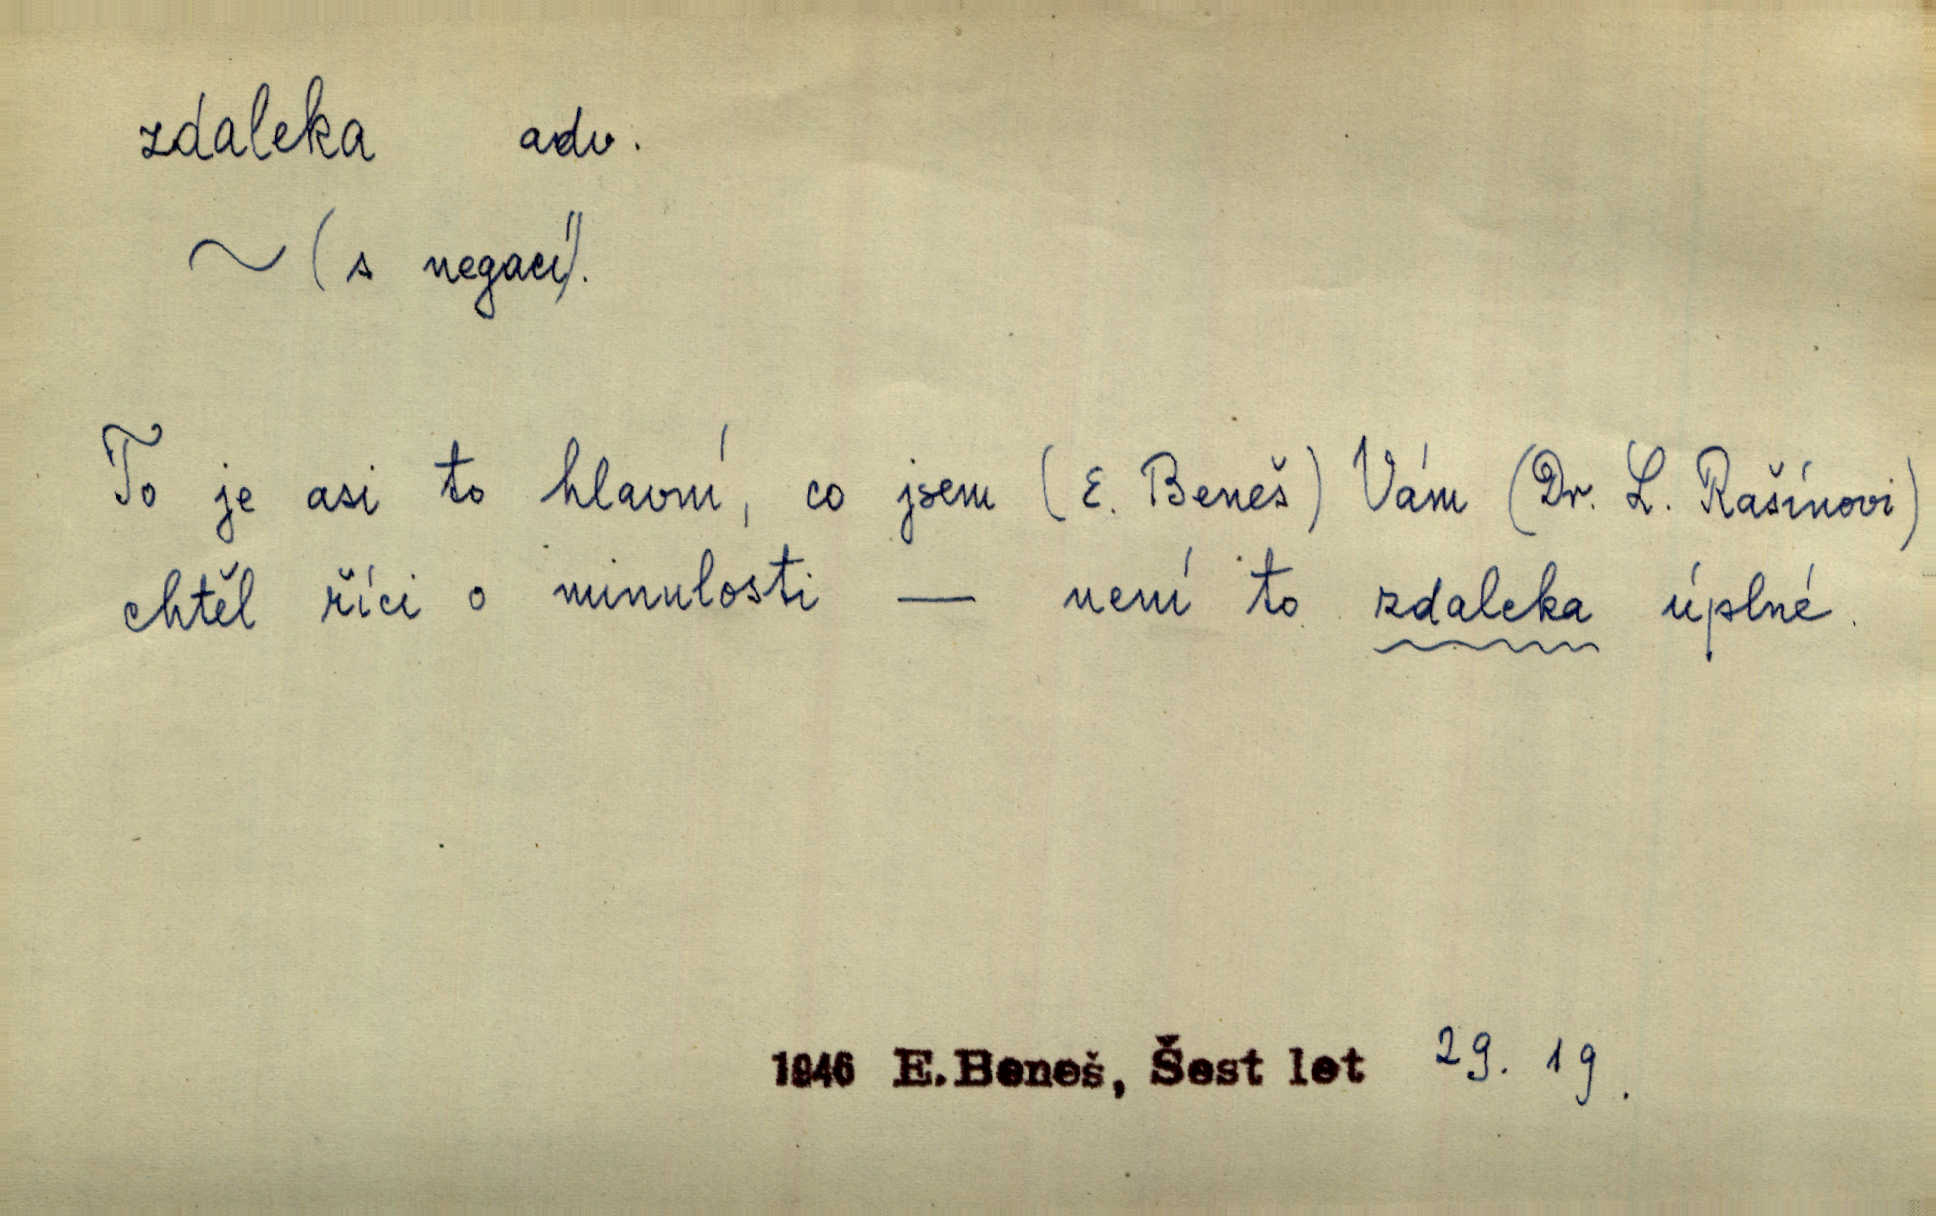 zdaleka adv.
~ (s negací).
To je asi to hlavní, co jsem (E. Beneš) Vám (Dr. L. Rašínovi)
chtěl říci o minulosti — není to zdaleka úplné.
1946 E. Beneš, Šest let 29. 19.